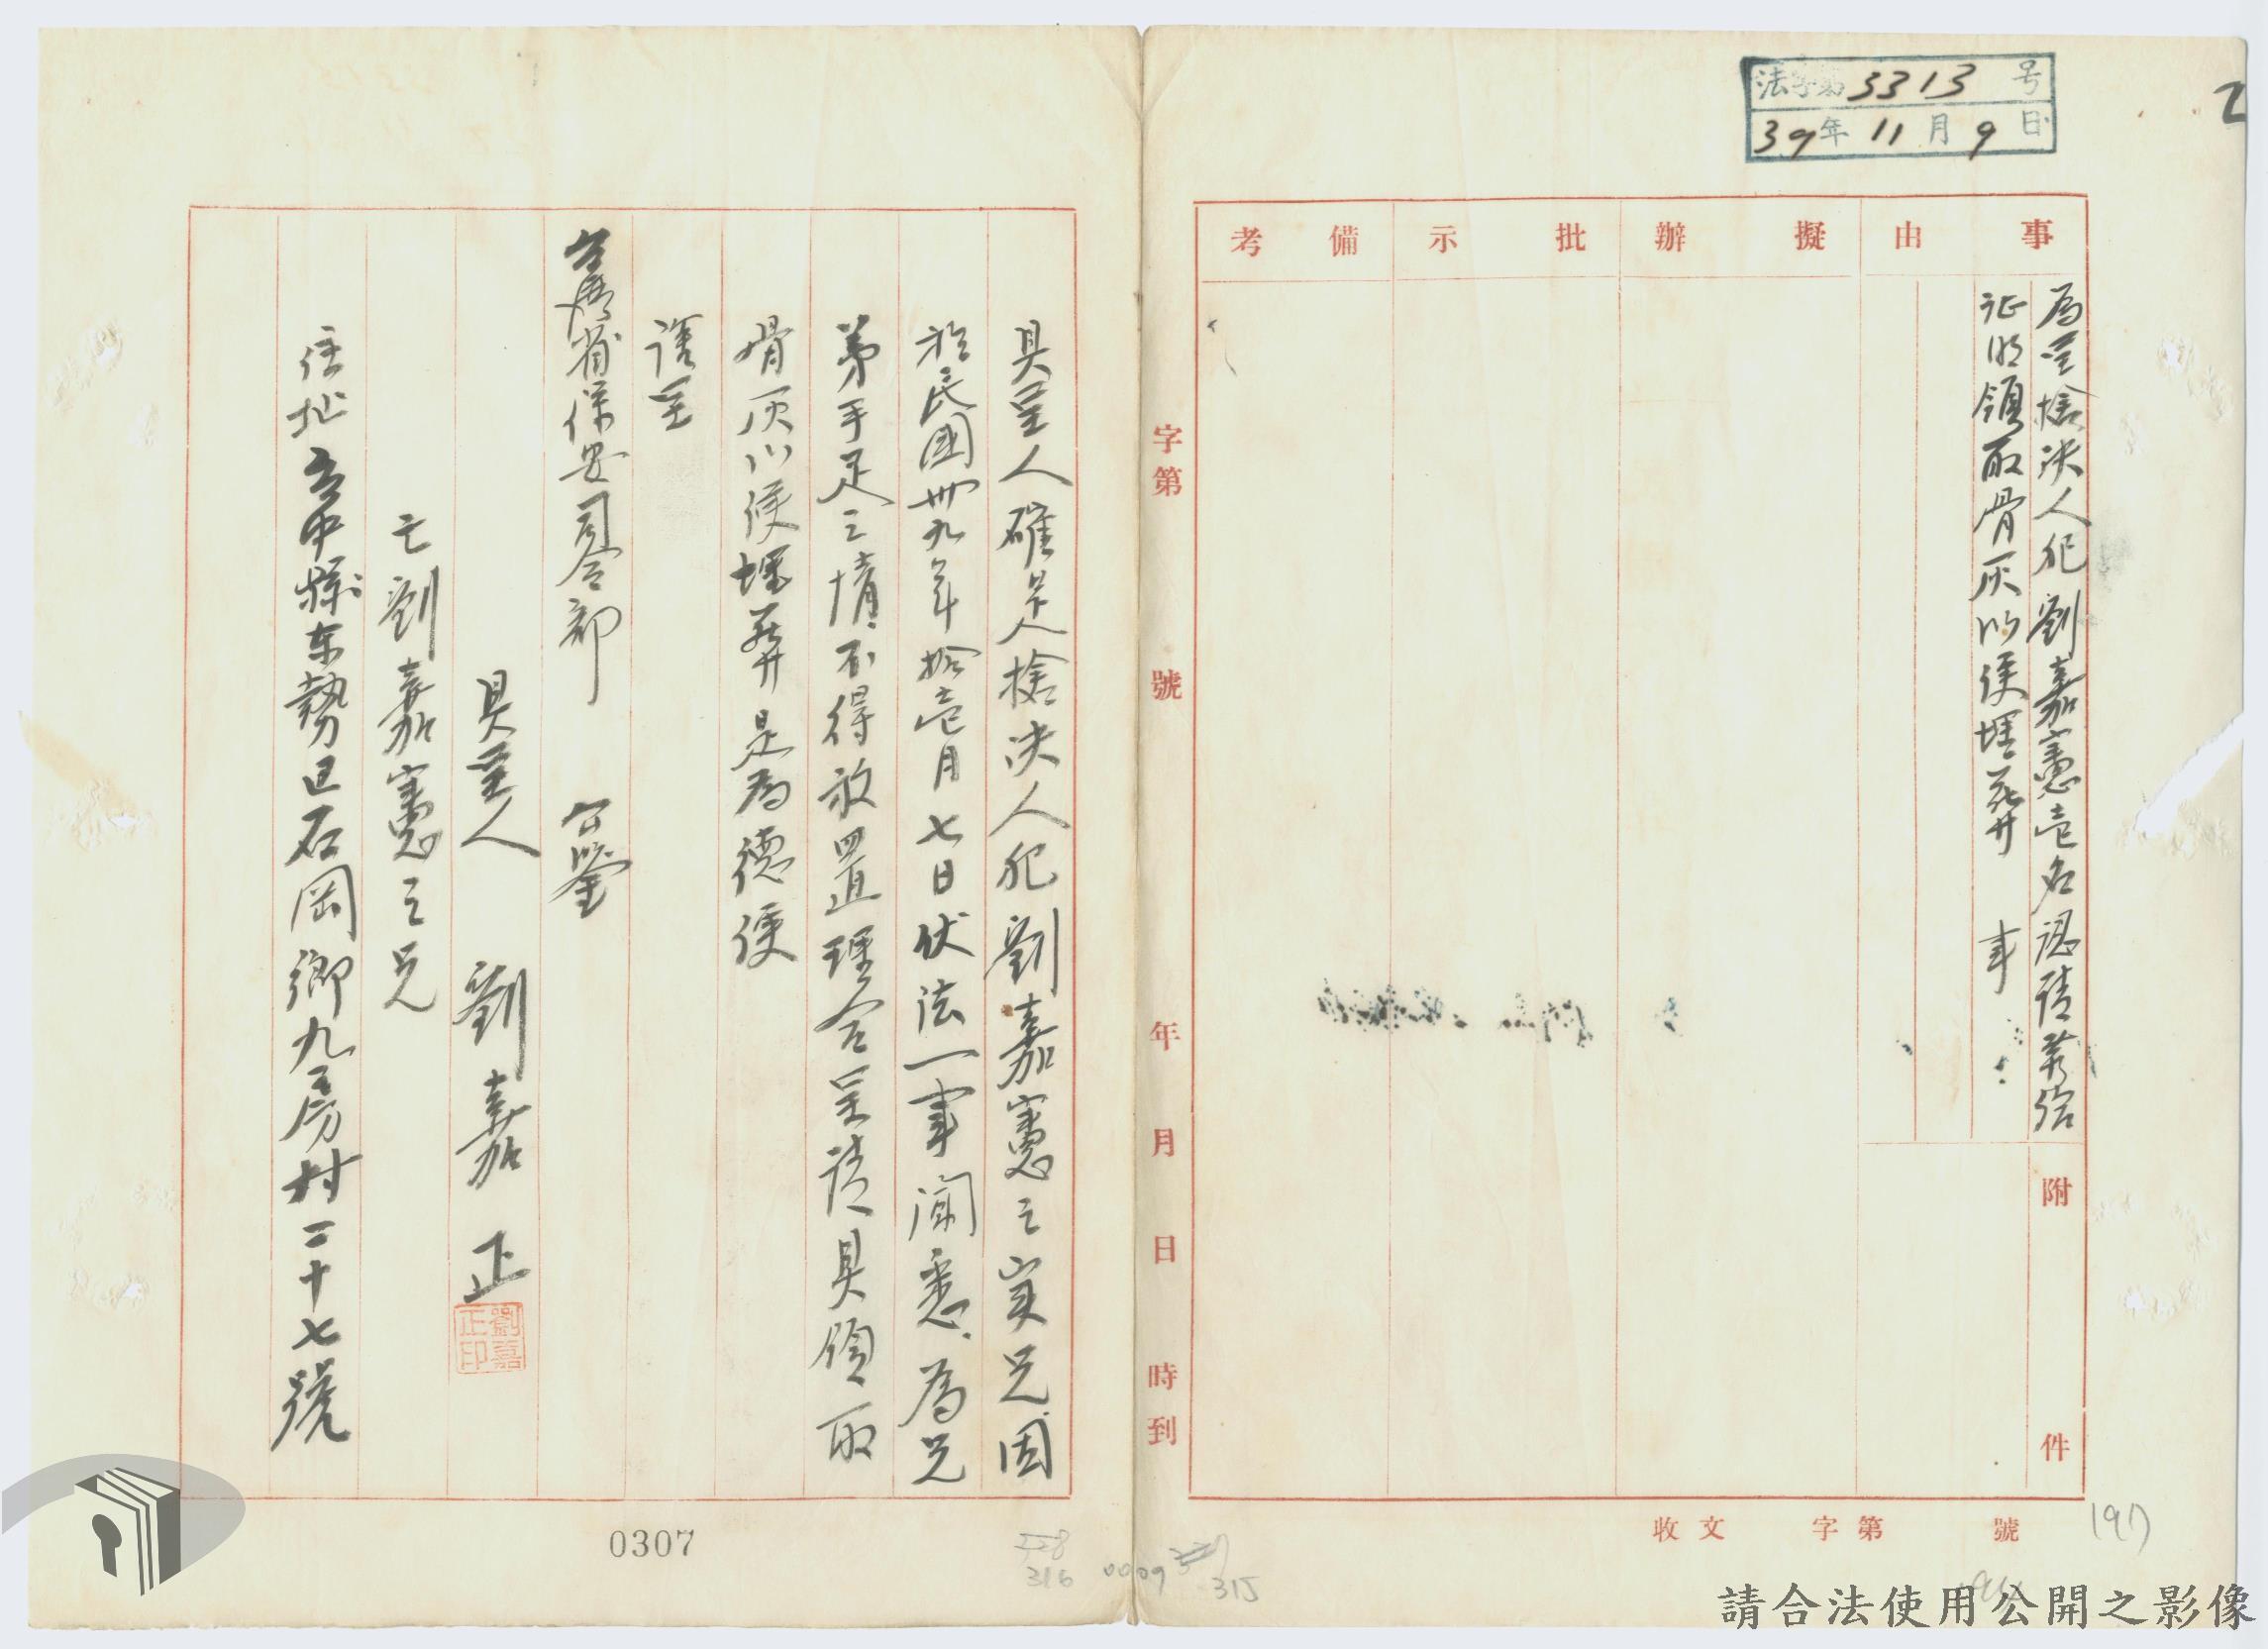 法字第3313号
39年11月9日
2
事由
擬辦
批示
備考
為呈槍決人犯劉嘉憲壱名認請發給
证明領取骨灰以便埋葬 事
附件
收文 字第 號
字第 號
年 月 日 時到
具呈人確是人槍決人犯劉嘉憲之实兄因
於民國卅九年拾壱月七日伏法一事聞悉.為兄
弟手足之情.不得放置理合呈請具領取
骨灰以便埋葬是為德便
謹呈
台灣省保安司令部 公鑒
具呈人 劉嘉正
劉嘉正印
亡劉嘉憲之兄
住址台中縣东勢区石岡鄉九房村二十七號
0307
316
0009
315
197
請合法使用公開之影像